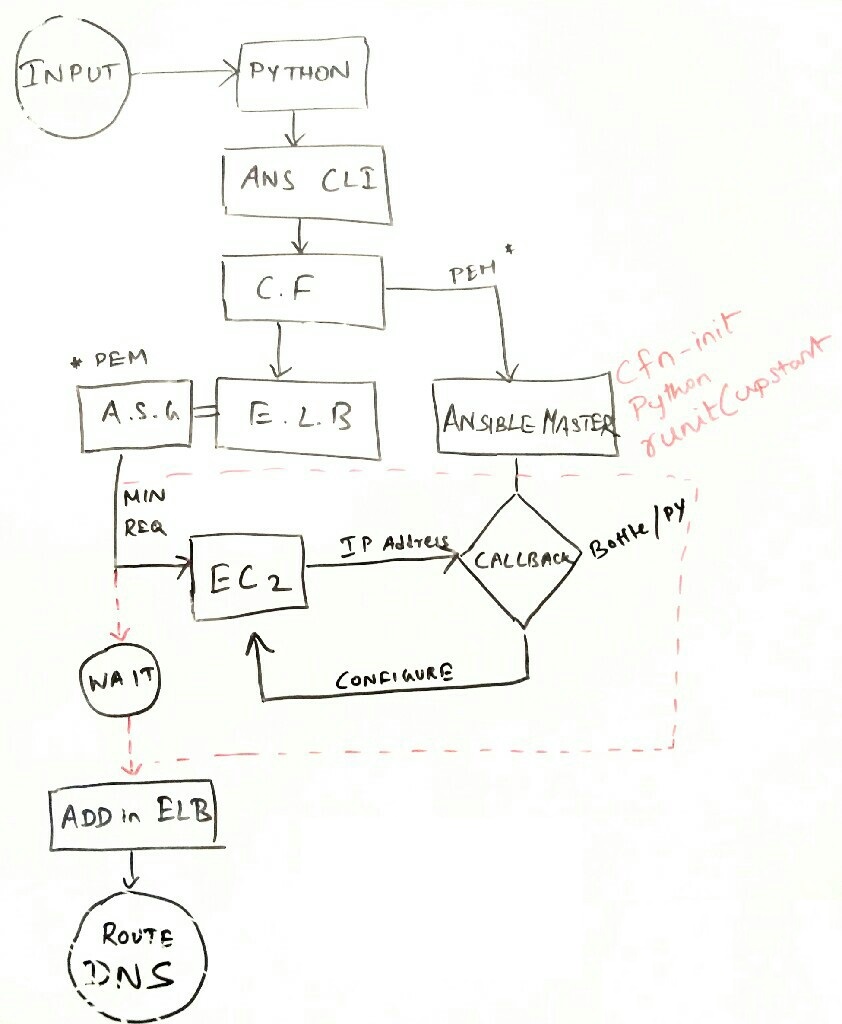 INPUT
PYTHON
ANS CLI
C.F
PEM *
* PEM
A.S.G
E.L.B
ANSIBLE MASTER
Cfn-init
Python
runit(upstart
MIN
REQ
EC2
IP Address
CALLBACK
Bottle/PY
CONFIGURE
WAIT
ADD in ELB
ROUTE
DNS